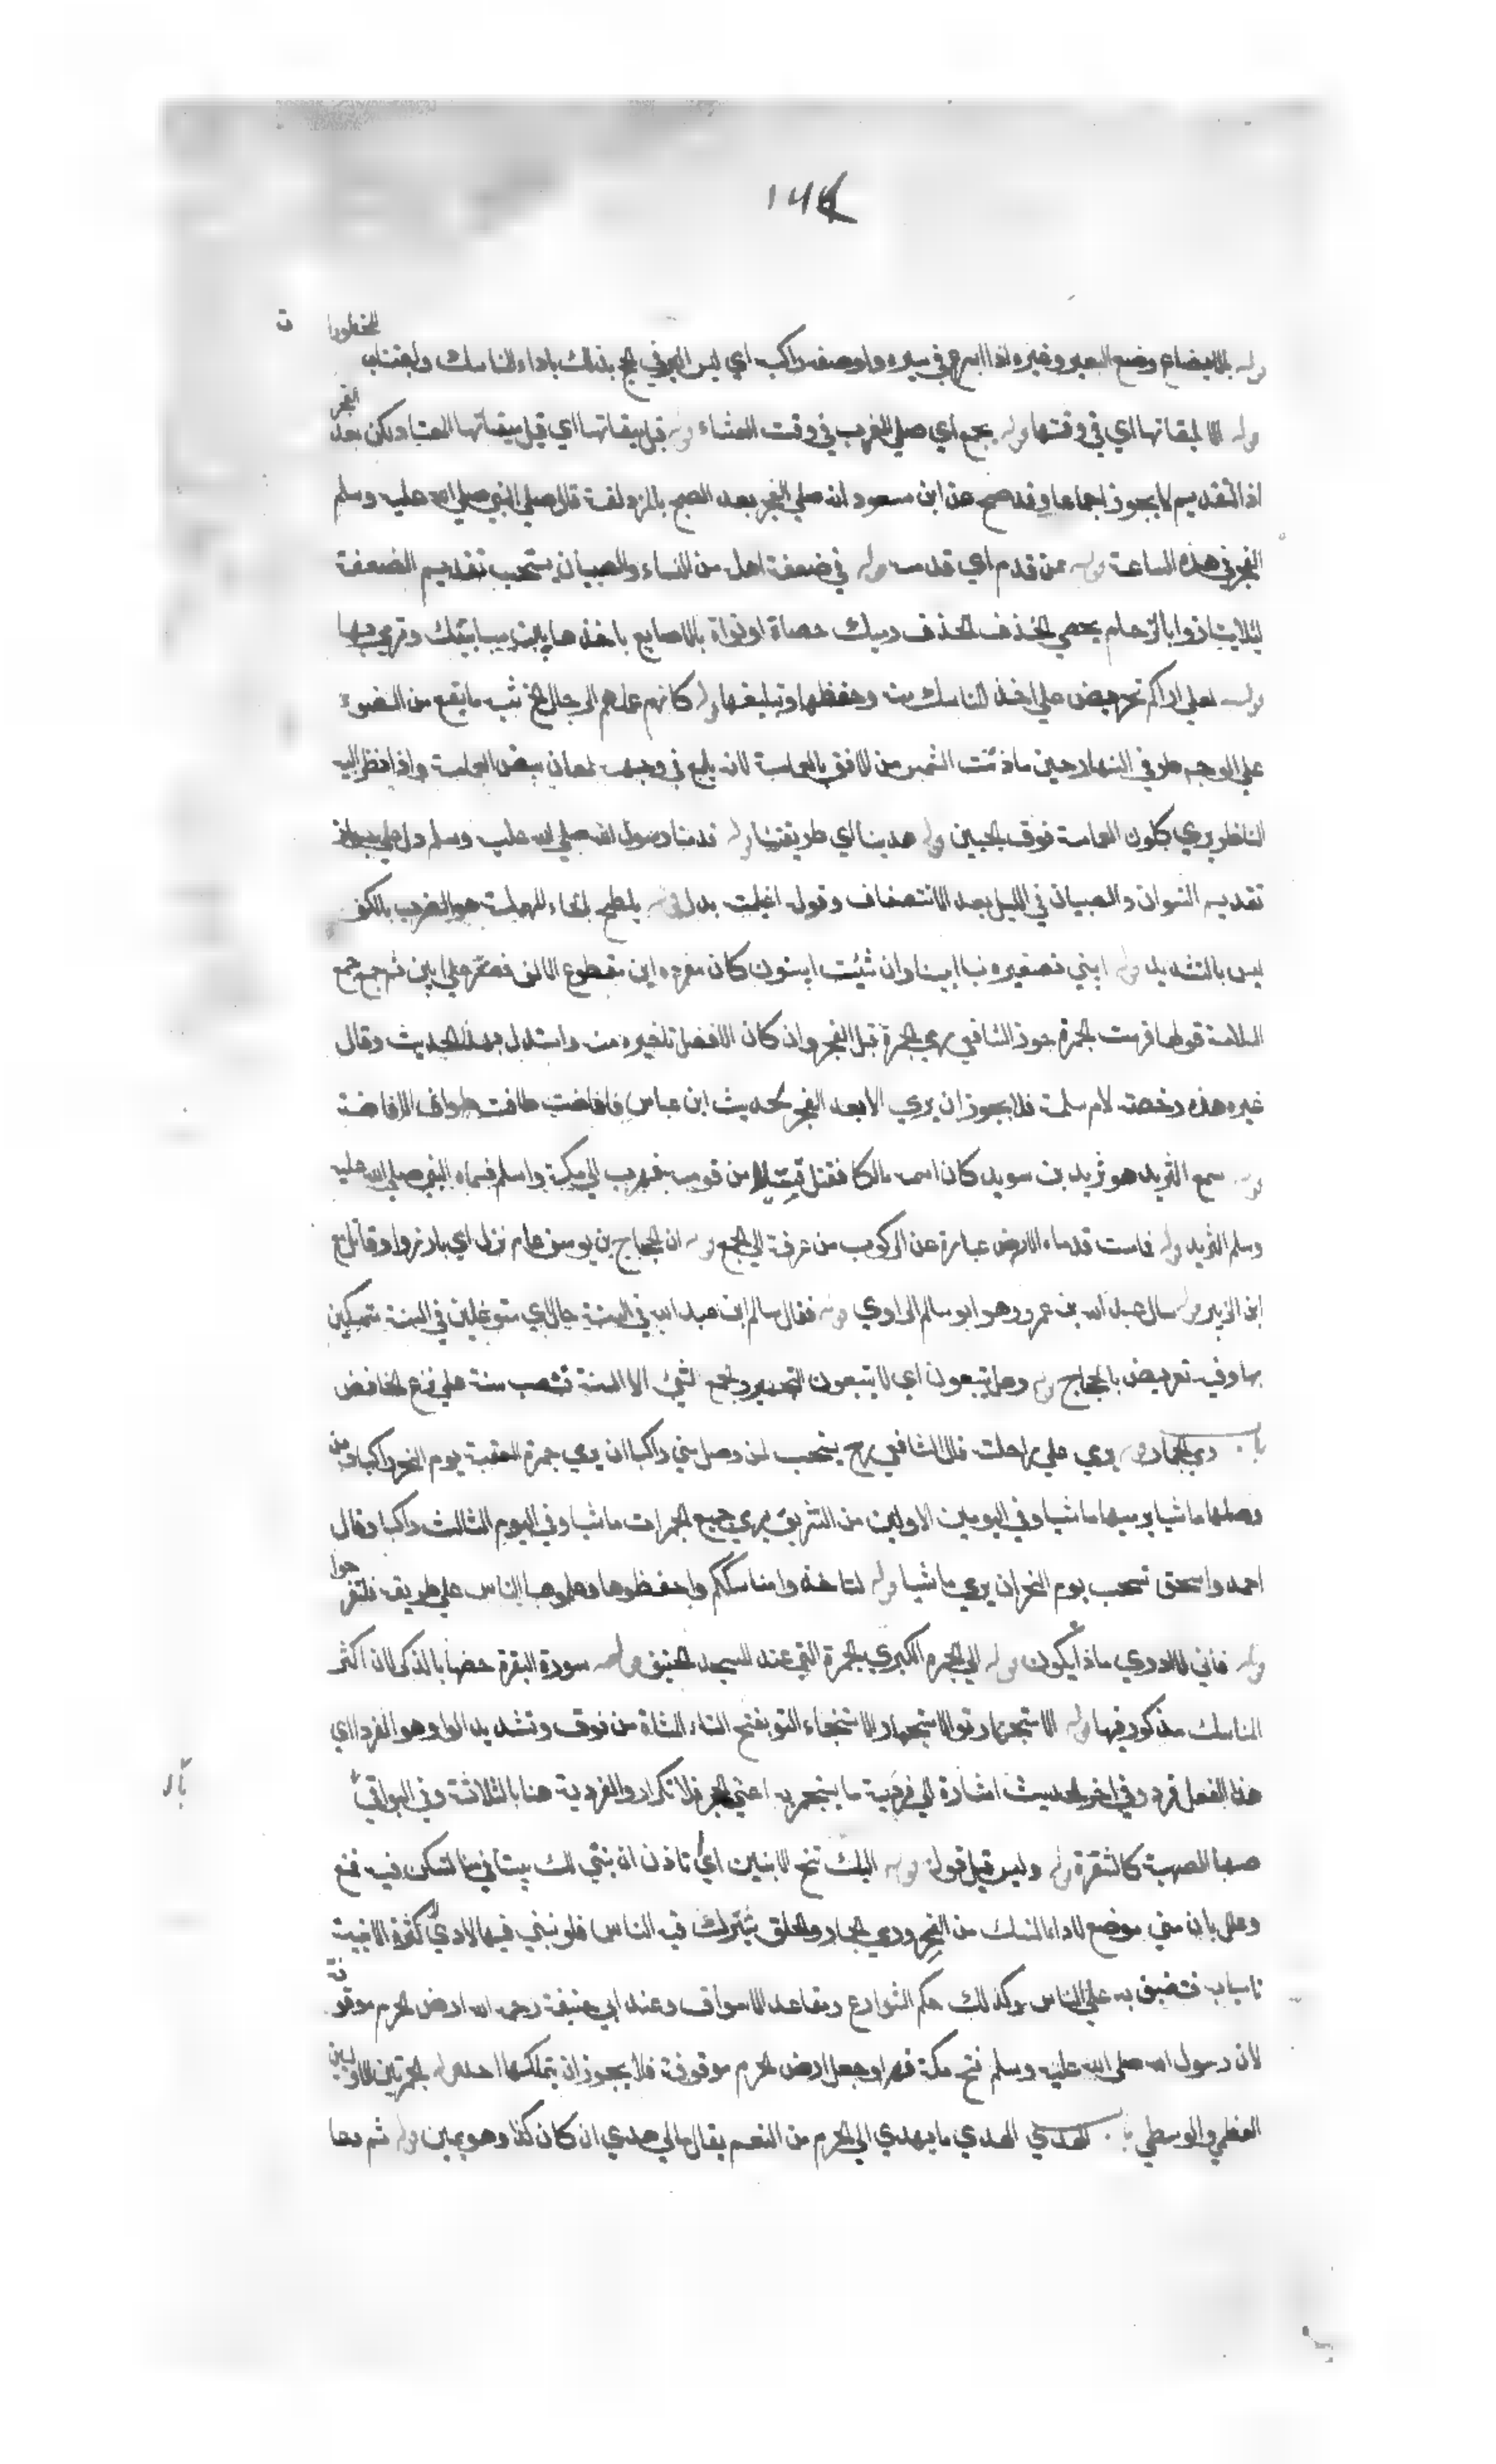 المحظورا ت
قوله بالايضاع وضع البعير وغيره اذا اسرع في سيره واوصفه راكبه اي ليس البر في الحج بذلك باداء المناسك واجتناب
قوله الا لميقاتها اي في وقتها قوله بجمع اي صلي المغرب في وقت العشاء قوله قبل ميقاتها اي قبل ميقاتها المعتاد لكن بعد الفجر
اذ التقديم لا يجوز اجماعا وقد صح عن ابن مسعود انه صلي الفجر بعد الصبح بالمزدلفة قال صلي النبي صلي الله عليه وسلم
الفجر في هذه الساعة قوله ممن قدم اي قدمه قوله في ضعفة اهله من النساء والصبيان يستحب تقديم الضعفة
لئلا يتاذوا بالزحام بحصي الخذف الخذف رميك حصاة او نواة بالاصابع باخذها بين سبابتيك وترمي بها
قوله لعلي لا اراكم تحريض علي اخذ المناسك منه وحفظها وتبليغها قوله كانهم عمائم الرجال الخ شبه ما يقع من الضوء
علي الوجه طرفي النهار حين ما دنت الشمس من الافق بالعمامة لانه يلمع في وجهه لمعان بياض العمامة واذا نظر اليه
الناظر يري كلون العمامة فوق الجبين قوله هدينا اي طريقتنا قوله قدمنا رسول الله صلي الله عليه وسلم دل علي جواز
تقديم النسوان والصبيان في الليل بعد الانتصاف وقوله اغيلمة بدل قوله يلطح بالحاء المهملة هو الضرب بالكف
ليس بالشديد قوله ابيني تصغير ابنا وان شئت ابينون كان مفرده ابن مقطوع الالف فصغر علي ابين ثم جمع جمع
السلامة قولها فرمت الجمرة جوز الشافعي رمي الجمرة قبل الفجر وان كان الافضل تاخيره منه واستدل بهذا الحديث وقال
غيره هذه رخصة لام سلمة فلا يجوز ان يرمي الا بعد الفجر لحديث ابن عباس فافاضت طافت طواف الافاضة
قوله سمع الشريد هو شريد بن سويد كان اسمه مالكا فقتل قتيلا من قومه فهرب الي مكة واسلم فسماه النبي صلي الله عليه
وسلم الشريد قوله فما مست قدماه الارض عبارة عن الركوب من عرفة الي الجمع قوله ان الحجاج بن يوسف عام نزل اي بارزوا وقاتل مع
ابن الزبير قوله سال عبد الله بن عمر وهو ابو سالم الراوي قوله فقال سالم ابن عبد الله في السنة حال اي متوغلين في السنة متمسكين
بها وفيه تعريض بالحجاج قوله وهل يتبعون اي لا يتبعون التهجير والجمع لشئ الا السنة نتصب سنة علي نزع الخافض
باب رمي الجمار قوله يرمي علي راحلته قال الشافعي رح يستحب لمن وصل مني راكبا ان يرمي جمرة العقبة يوم النحر راكبا ومن
وصلها ماشيا يرميها ماشيا وفي اليومين الاولين من التشريق يرمي جميع الجمرات ماشيا وفي اليوم الثالث راكبا وقال
احمد واسحق تستحب يوم النحر ان يرمي ماشيا قوله لتاخذوا مناسككم واحفظوها وعلموها الناس علي طريقه فلتفر حوا
قوله فاني لا ادري ماذا يكون قوله الي الجمرة الكبري الجمرة التي عند المسجد الخيف قوله سورة البقرة خصها بالذكر لان اكثر
المناسك مذكور فيها قوله الاستجمار تو الاستجمار الاستنجاء التو بفتح التاء المثناة من فوق وتشديد الواو هو الفرد اي
هذا الفعل فرد وفي اخر الحديث اشارة الي فردية ما يستجمر به اعني الحجر فلا تكرار والفردية هنا بالثلاثة وفي البواقي
صهبا الصهبة كالشقرة قوله وليس قيل قوله قوله اليك تنح الا نبني اي اتاذن ان نبني لك بيتا في منا لتسكن فيه فمنع
وعلل بان مني موضع لاداء النسك من النحر ورمي الجمار والحلق يشترك فيه الناس فلو نبني فيها لادي كثرة الابنية
تاسيا به فتضيق به علي الناس وكذلك حكم الشوارع ومقاعد الاسواق وعند ابي حنيفة رحمه الله ارض الحرم موقو فة
لان رسول الله صلي الله عليه وسلم فتح مكة قهرا وجعل ارض الحرم موقوفة فلا يجوز ان يتملكها احد قوله الجمرتين الاوليين
العظمي والوسطي باب الهدي الهدي ما يهدي الي الحرم من النعم يقال مالي هدي ان كان كذا وهو يمين قوله ثم دعا